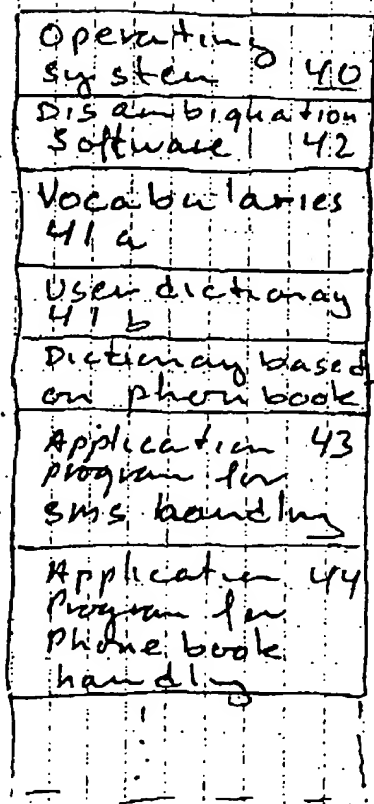 Operating
system 40
Disambiguation
Software 42
Vocabularies
41 a
User dictionary
41 b
Dictionary based
on phonbook
Application 43
program for
sms handling
Application 44
Program for
Phone book
handling